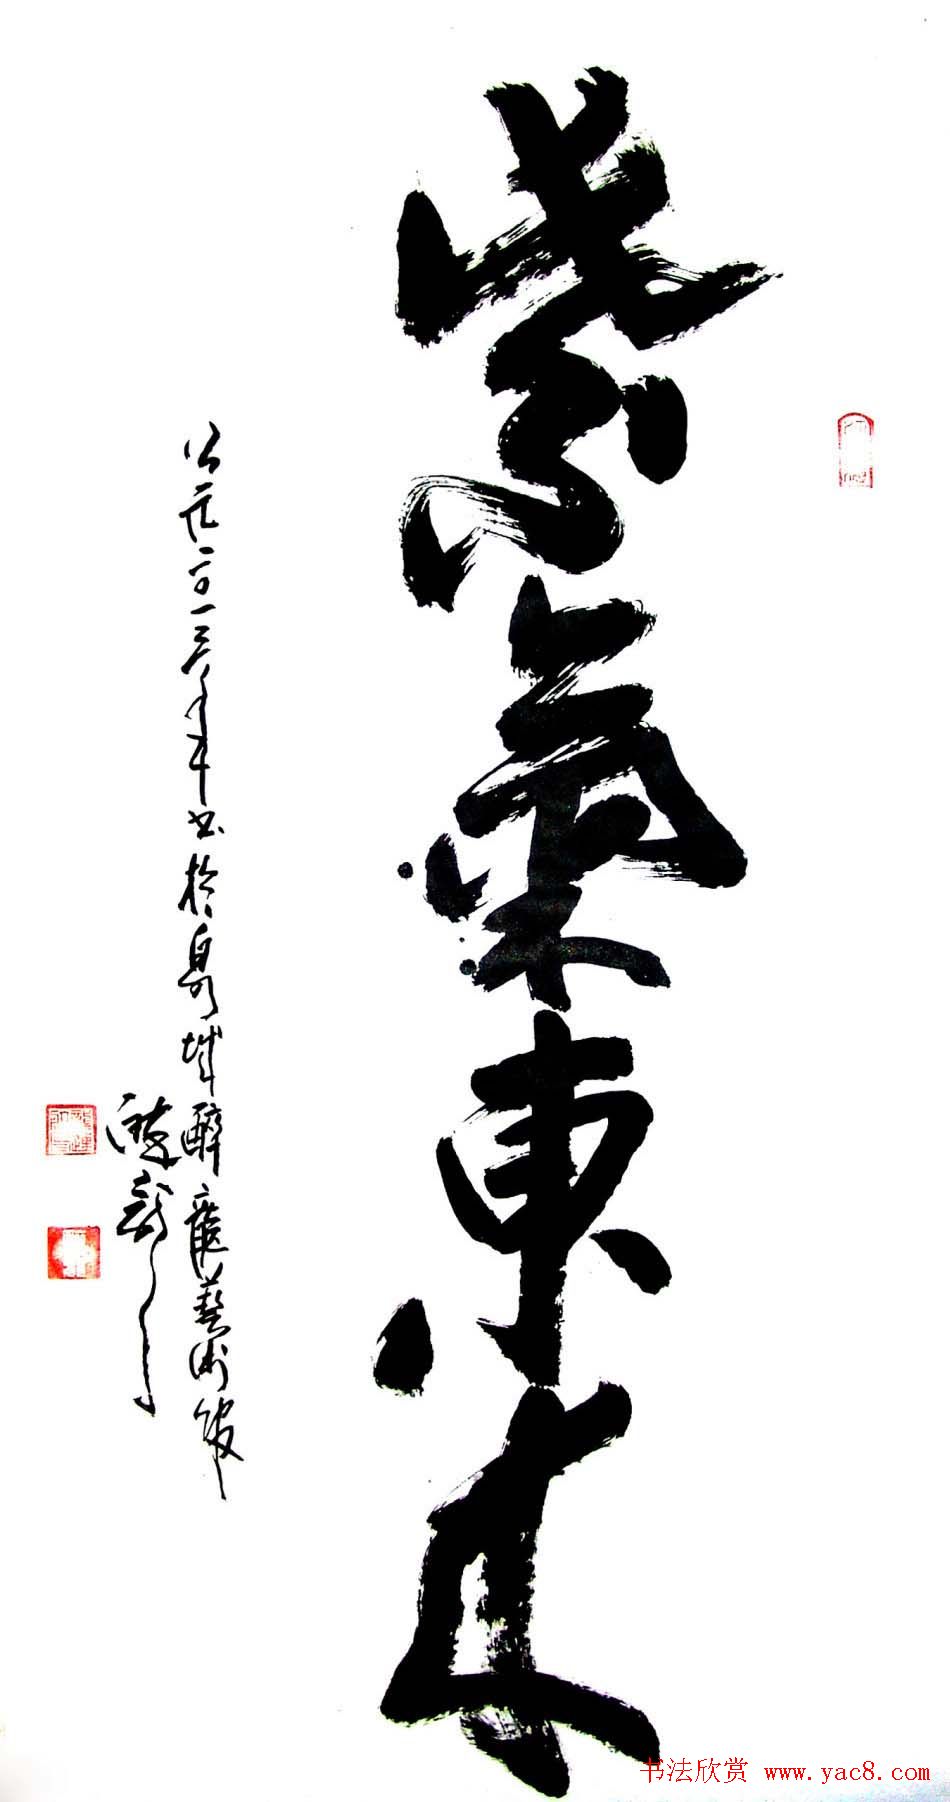 紫氣東来
公元二〇一三年書於泉城醉龍藝術館
书法欣赏 www.yac8.com